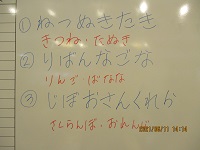 ① ねつぬきたき
きつね・たぬき
② りばんなごな
りんご ばなな
③ じぼおさんくれら
さくらんぼ・おれんじ
2021/09/11 14:14